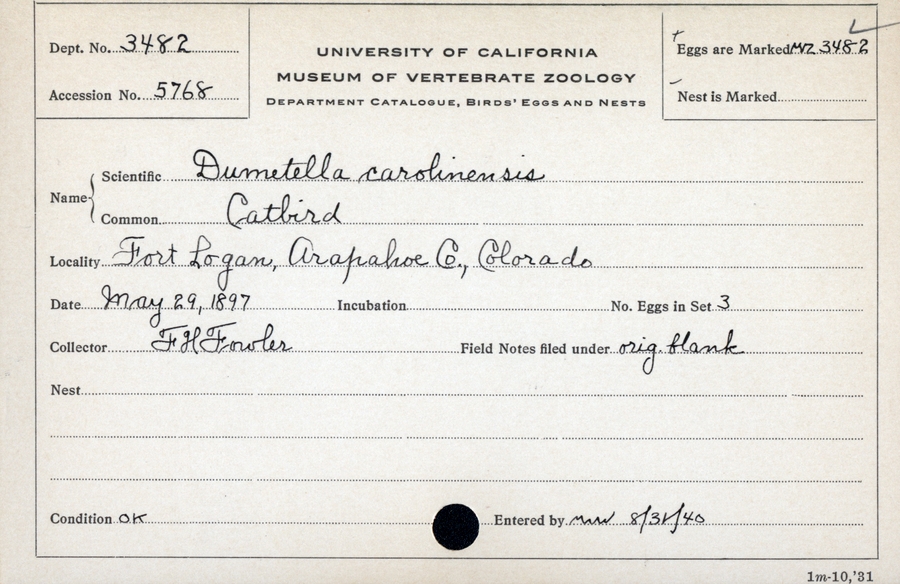 Dept. No. 3482
Accession No. 5768
UNIVERSITY OF CALIFORNIA
MUSEUM OF VERTEBRATE ZOOLOGY
DEPARTMENT CATALOGUE, BIRDS' EGGS AND NESTS
Eggs are Marked MVZ 3482
Nest is Marked
Name
Scientific Dumetella carolinensis
Common Catbird
Locality Fort Logan, Arapahoe Co., Colorado
Date May 29, 1897 Incubation No. Eggs in Set 3
Collector F H Fowler Field Notes filed under orig. blank
Nest
Condition OK Entered by 8/31/40
1m-10,'31